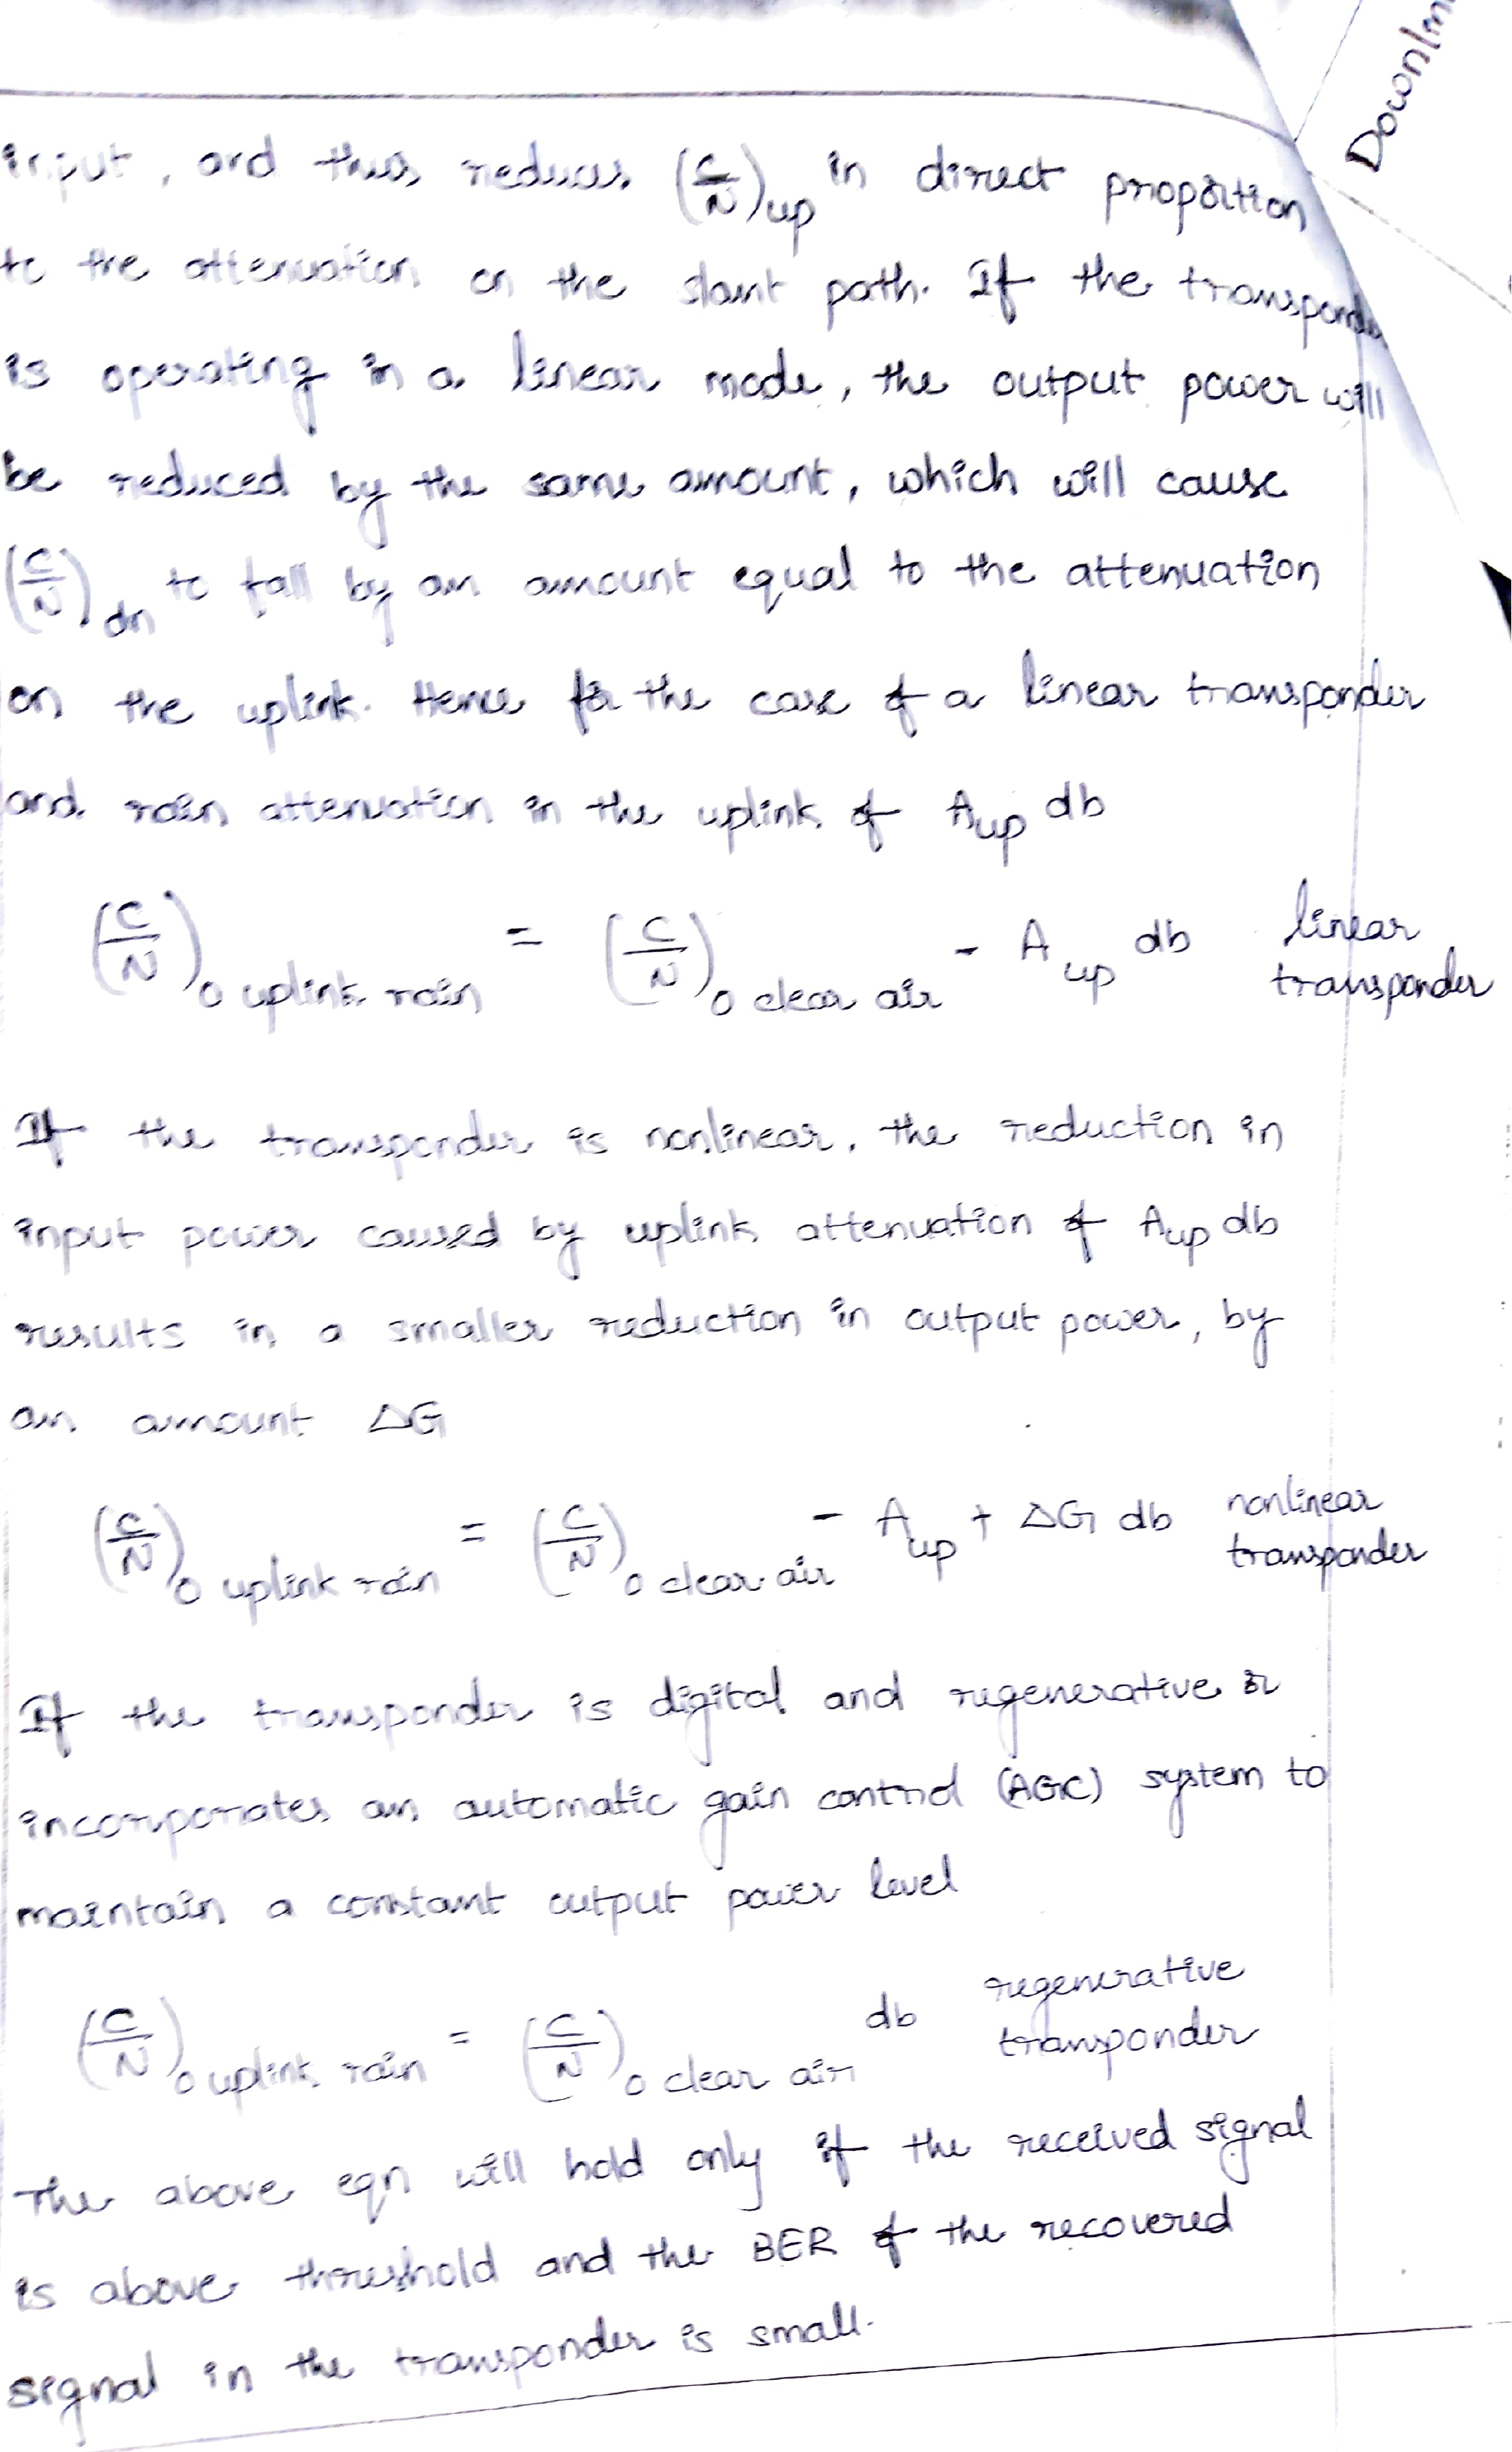 Downlin
input, and thus reduces (C/N)up in direct proportion
to the attenuation on the slant path. If the transponder
is operating in a linear mode, the output power will
be reduced by the same amount, which will cause
(C/N)dn to fall by an amount equal to the attenuation
on the uplink. Hence for the case of a linear transponder
and rain attenuation in the uplink of Aup db
(C/N)0 uplink rain = (C/N)0 clear air - Aup db linear transponder
If the transponder is nonlinear, the reduction in
input power caused by uplink attenuation of Aup db
results in a smaller reduction in output power, by
an amount ΔG
(C/N)0 uplink rain = (C/N)0 clear air - Aup + ΔG db nonlinear transponder
If the transponder is digital and regenerative or
incorporates an automatic gain control (AGC) system to
maintain a constant output power level
(C/N)0 uplink rain = (C/N)0 clear air db regenerative transponder
The above eqn will hold only if the received signal
is above threshold and the BER of the recovered
signal in the transponder is small.